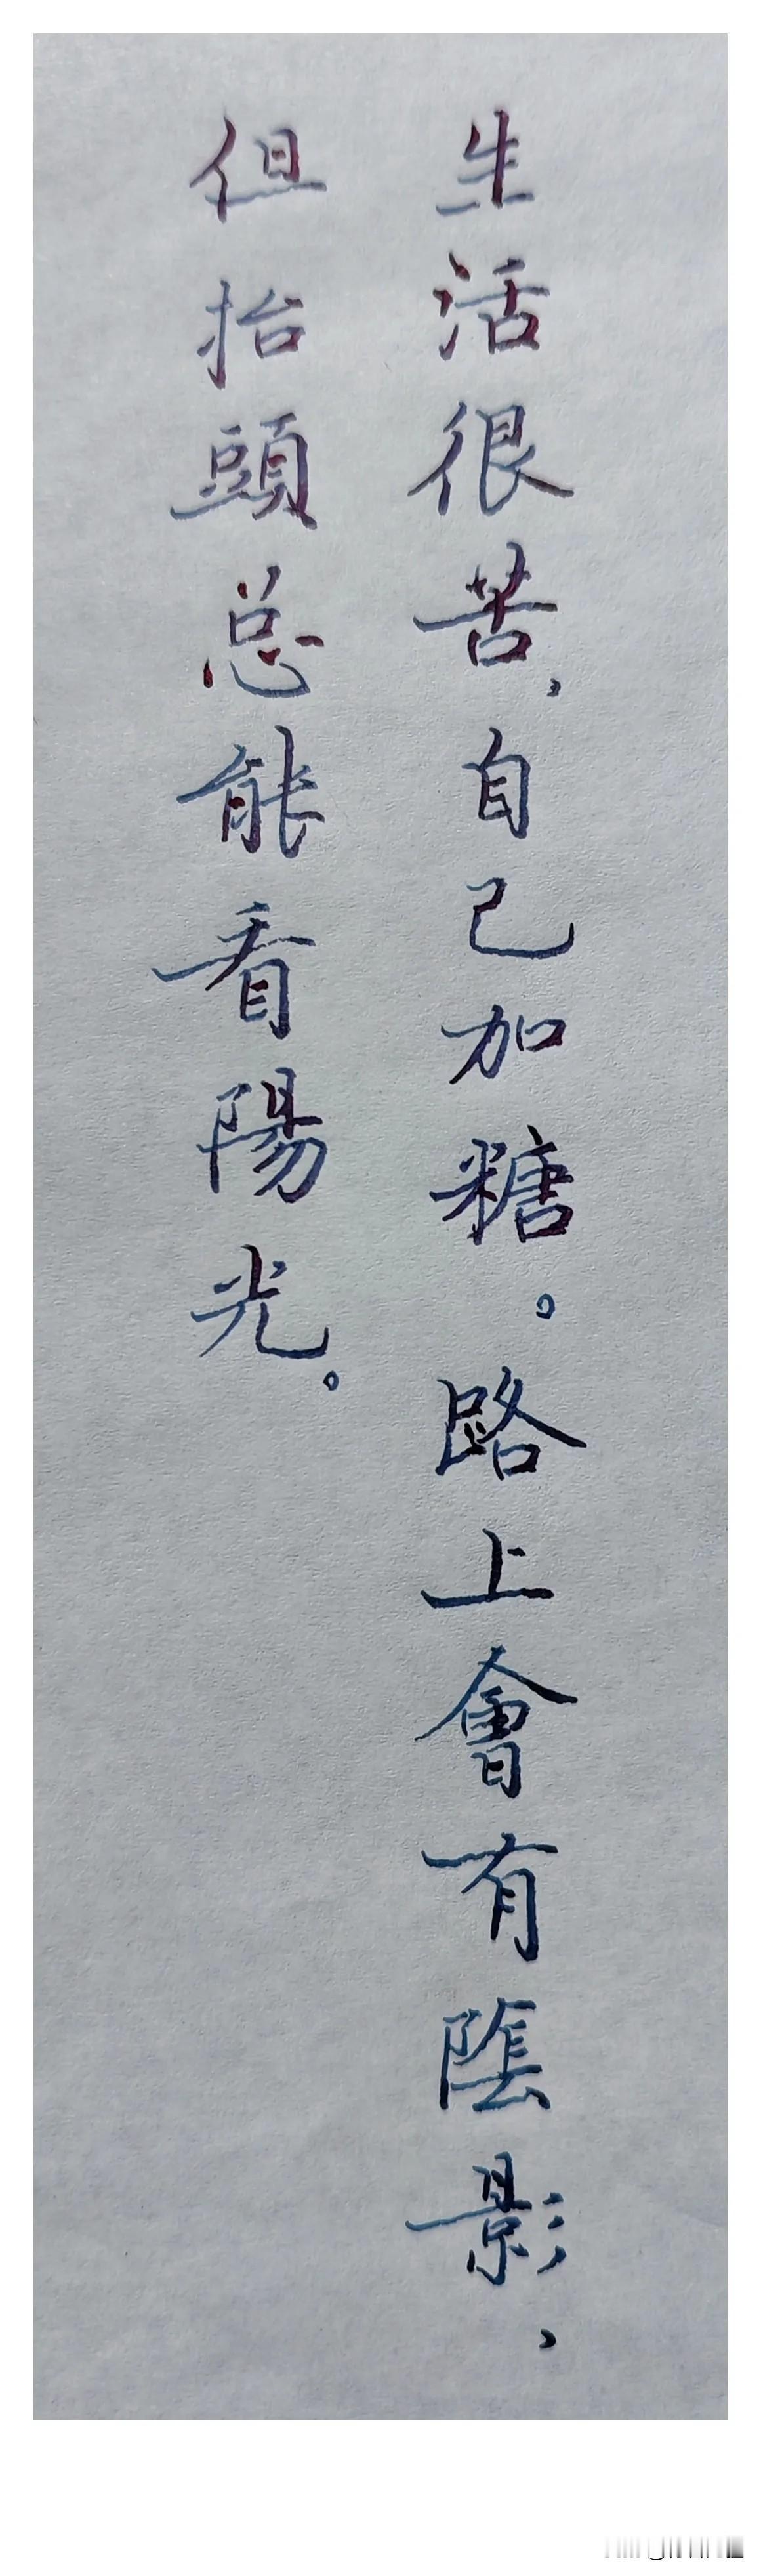 生活很苦,自己加糖。路上會有隂影,
但抬頭总能看陽光。